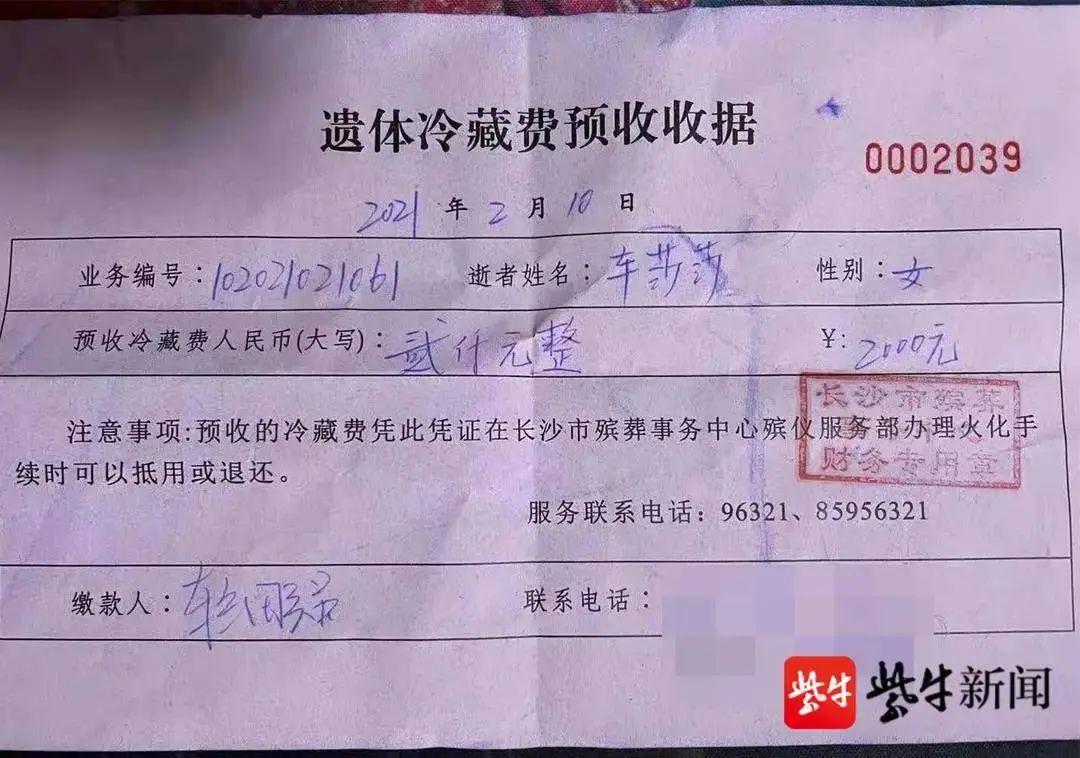 遗体冷藏费预收收据
0002039
2021年2月10日
业务编号:102021021061 逝者姓名:车莎莎 性别:女
预收冷藏费人民币(大写):贰仟元整 ¥:2000元
长沙市殡葬
财务专用章
注意事项:预收的冷藏费凭此凭证在长沙市殡葬事务中心殡仪服务部办理火化手
续时可以抵用或退还。
服务联系电话:96321、85956321
缴款人: 联系电话:
紫牛 紫牛新闻